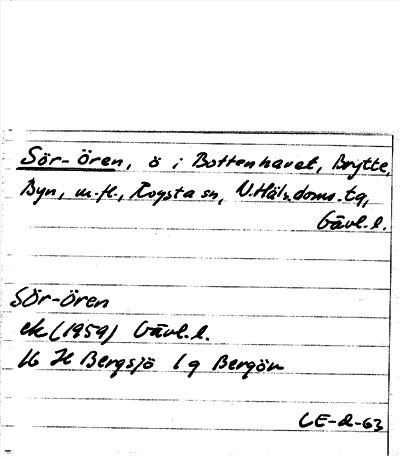 Sör-Ören, ö i Bottenhavet, Brytte,
Byn, m.fl., Rogsta sn, N.Häls.doms.tg,
Gävl.l.
Sör-Ören
ek (1959) Gävl.l.
16 H Bergsjö 1 g Bergön
LE-2-63